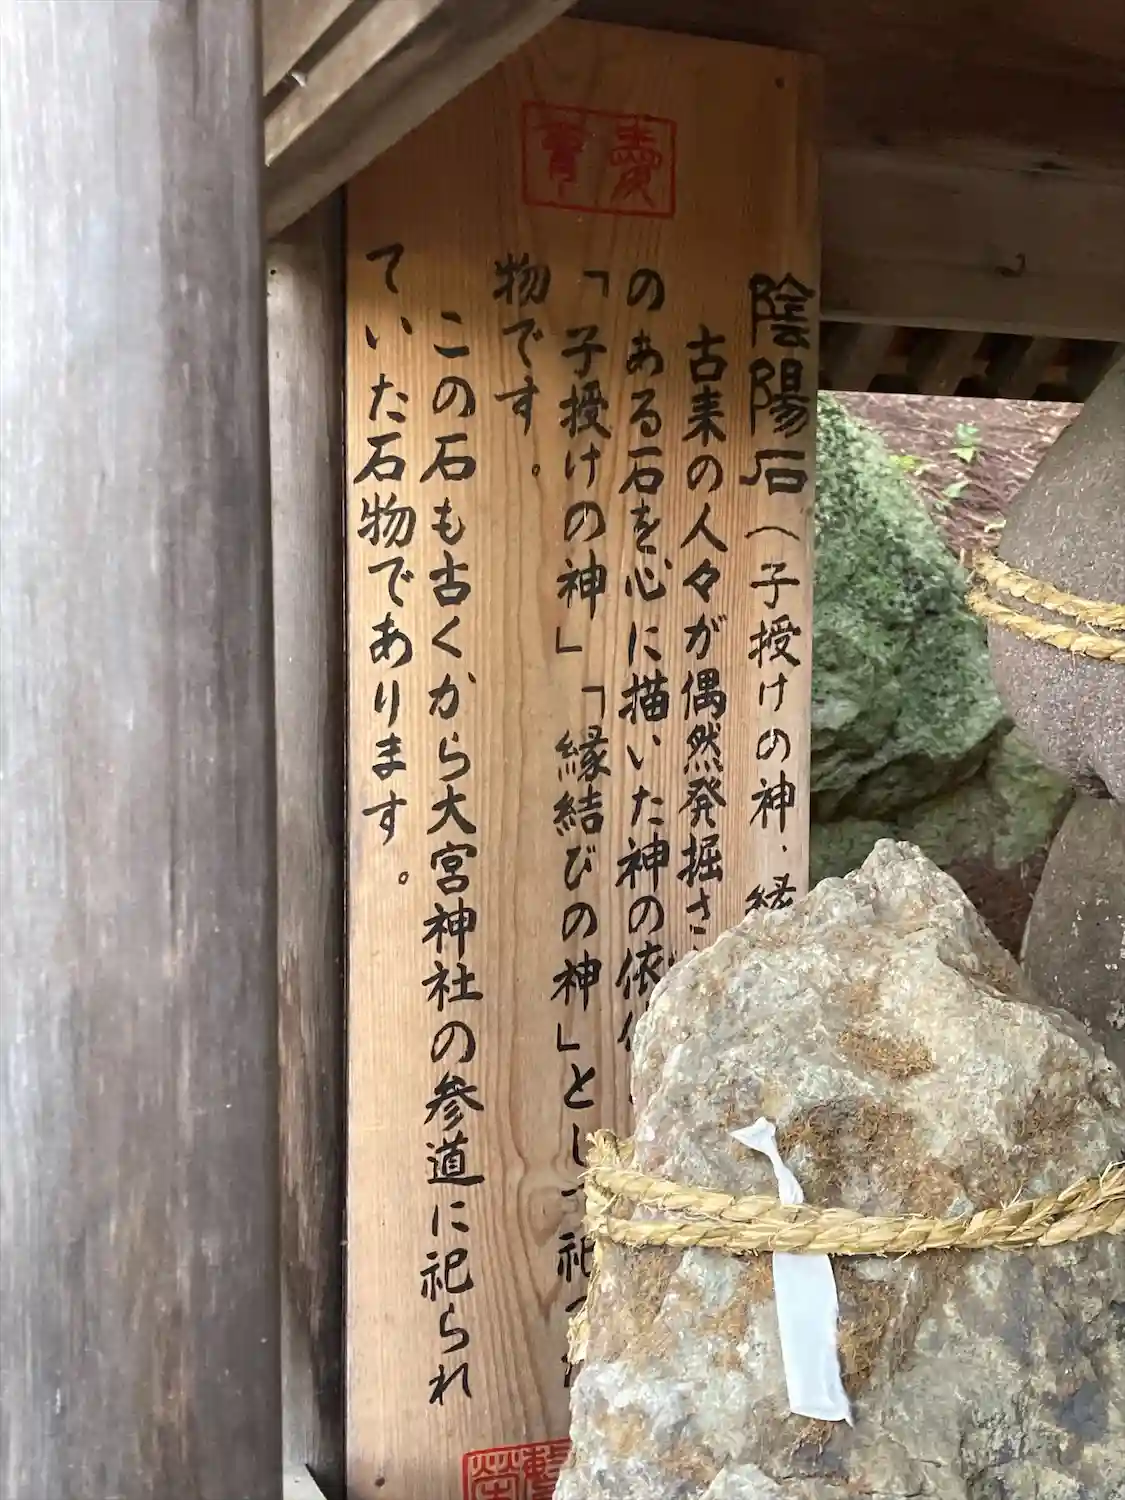 陰陽石(子授けの神、縁
古来の人々が偶然発掘さ
のある石を心に描いた神の依
「子授けの神」「縁結びの神」として祀っ
物です。
この石も古くから大宮神社の参道に祀られ
ていた石物であります。